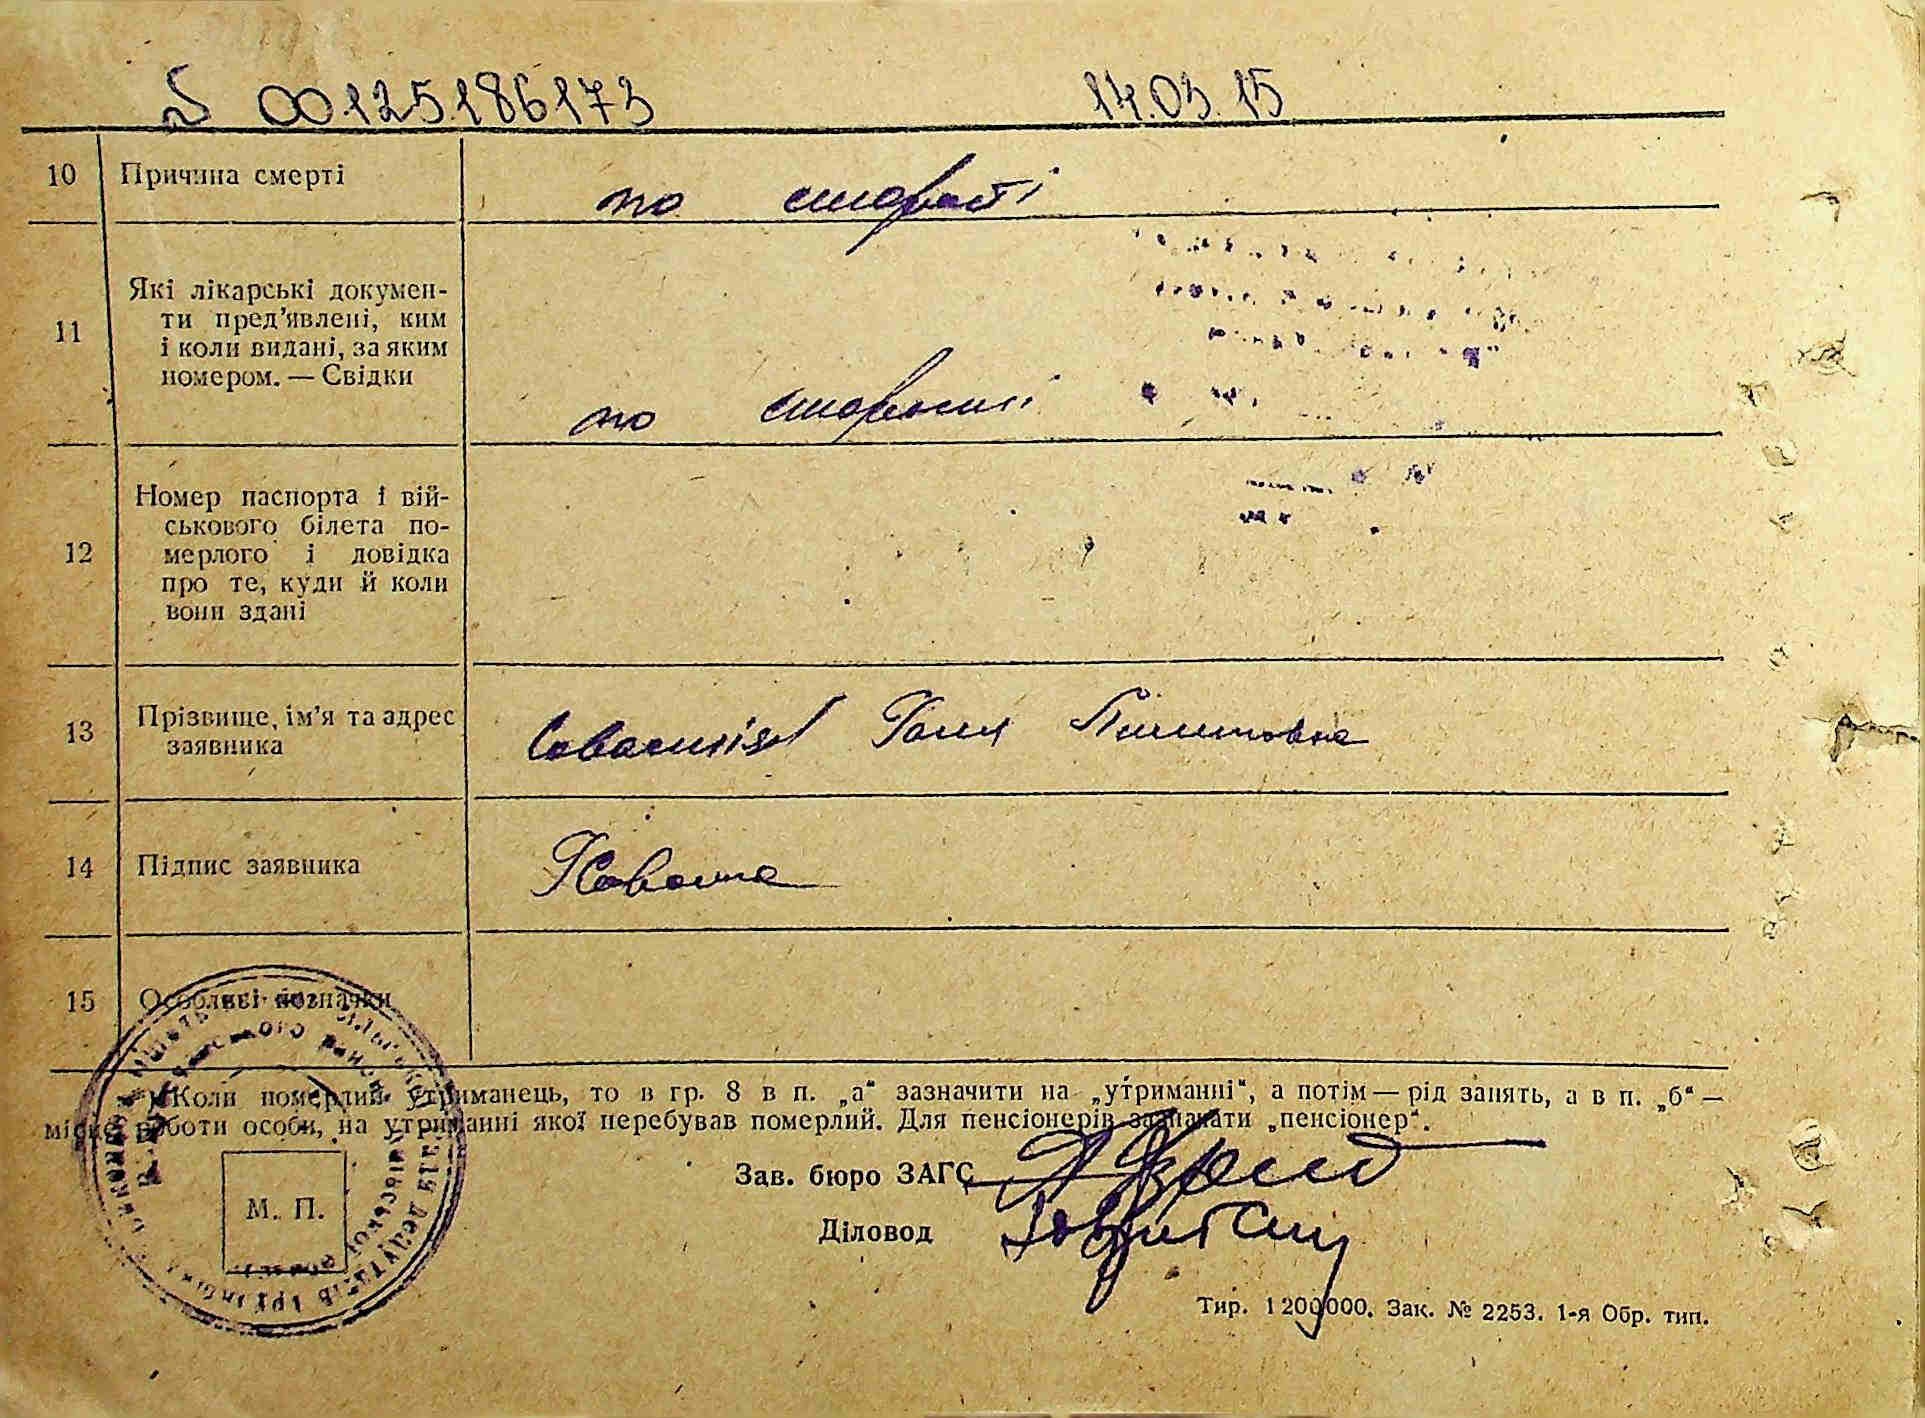 00125186173 14.03.15
10 Причина смерті
по старості
11 Які лікарські докумен-
ти пред’явлені, ким
і коли видані, за яким
номером. — Свідки
по старості
12 Номер паспорта і вій-
ськового білета по-
мерлого і довідка
про те, куди й коли
вони здані
13 Прізвище, ім’я та адрес
заявника
Галя
14 Підпис заявника
15 Особливі позначки
*) Коли померлий утриманець, то в гр. 8 в п. „а“ зазначити на „утриманні“, а потім — рід занять, а в п. „б“ —
місце роботи особи, на утриманні якої перебував померлий. Для пенсіонерів зазначати „пенсіонер“.
Зав. бюро ЗАГС
М. П.
Діловод
Тир. 1 200 000. Зак. № 2253. 1-я Обр. тип.